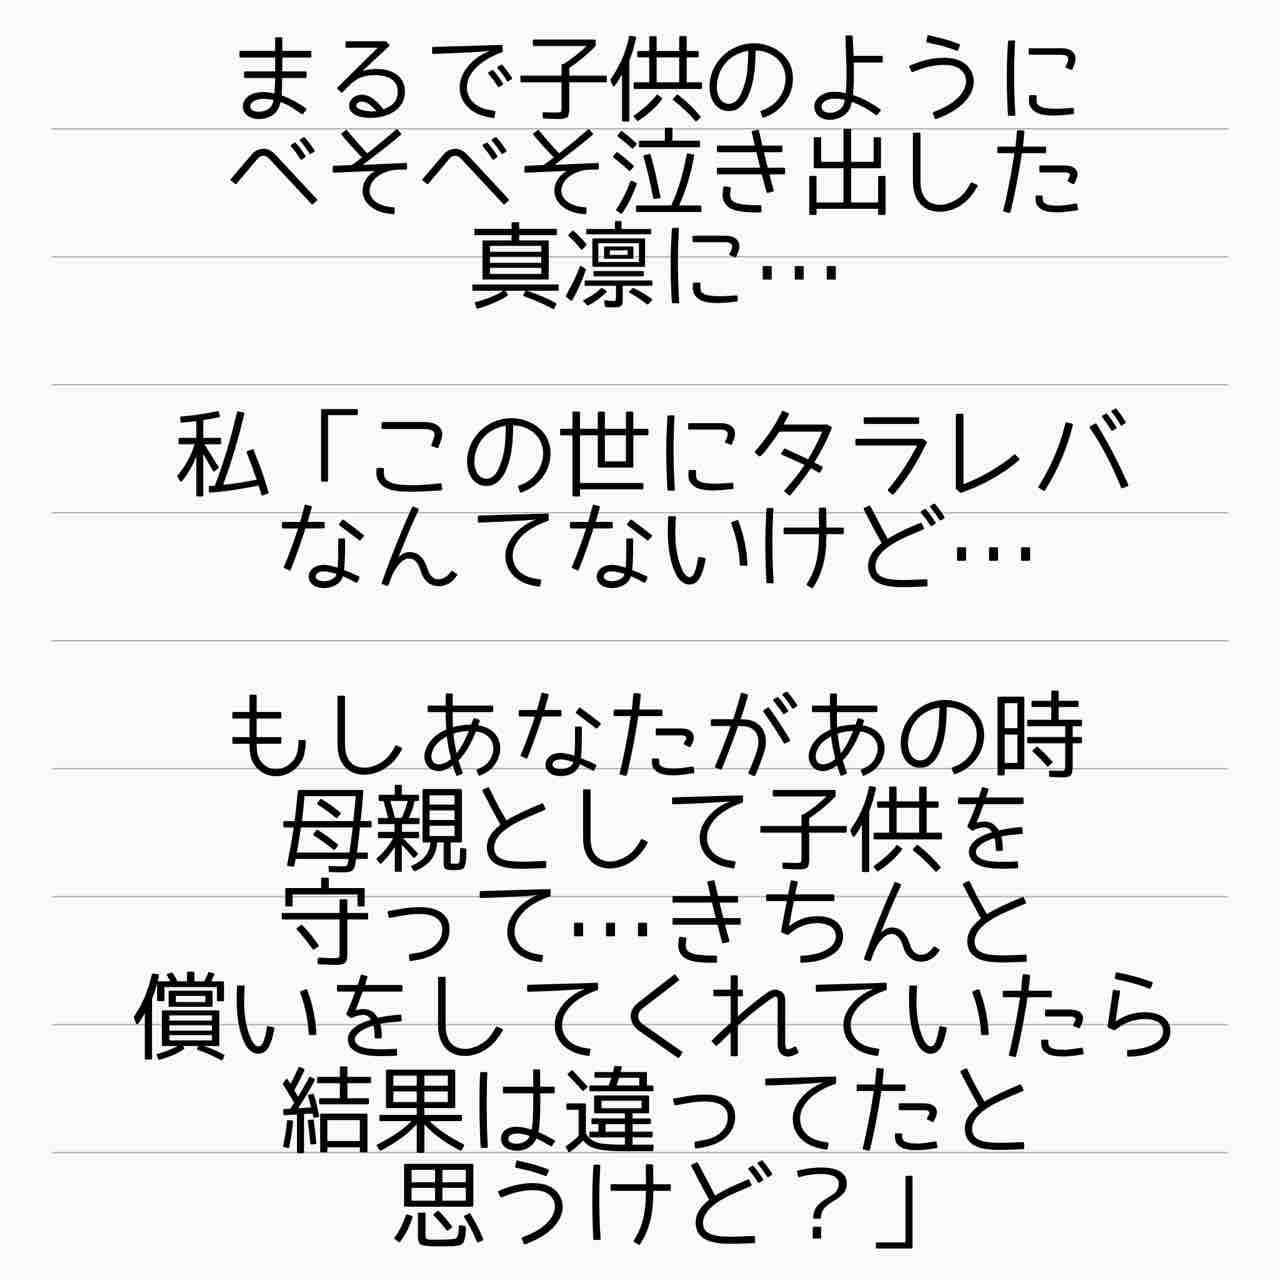 まるで子供のように
べそべそ泣き出した
真凛に…
私「この世にタラレバ
なんてないけど…
もしあなたがあの時
母親として子供を
守って…きちんと
償いをしてくれていたら
結果は違ってたと
思うけど？」